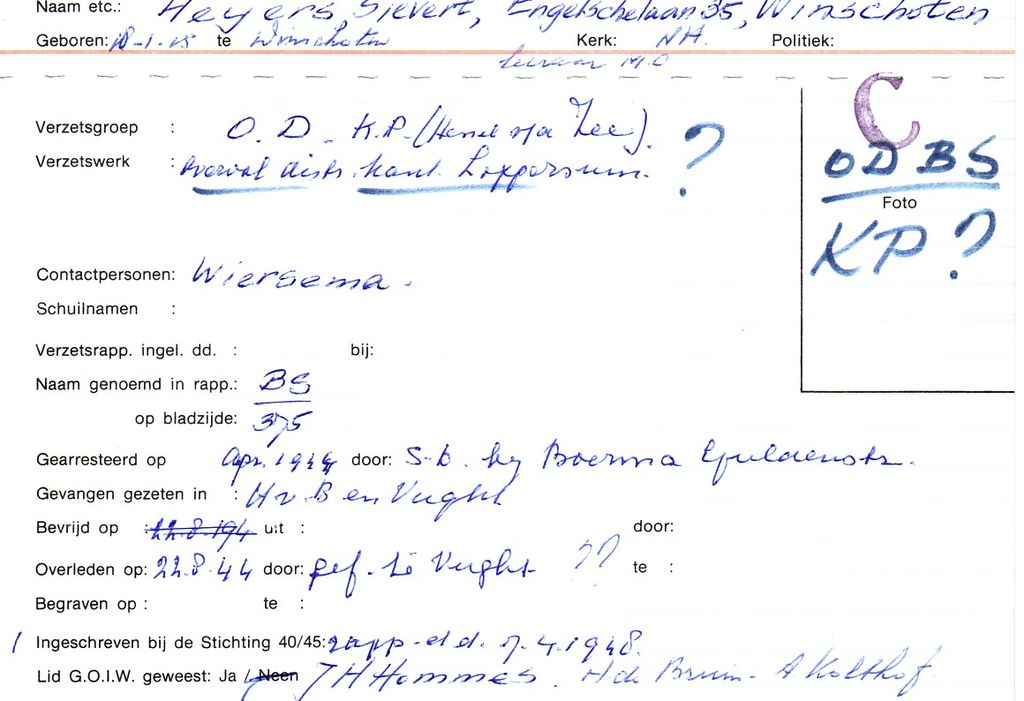 Naam etc.: Heyers, Sievert, Engelschelaan 35, Winschoten
Geboren: 18-1-15 te Winschoten Kerk: NH. Politiek:
leeraar M.O
C
Verzetsgroep : O.D. K.P. (Hessel v/d Zee). ?
Verzetswerk : Overval distr. kant. Loppersum.
OD BS
Foto
KP?
Contactpersonen: Wiersema.
Schuilnamen :
Verzetsrapp. ingel. dd. : bij:
Naam genoemd in rapp.: BS
op bladzijde: 375
Gearresteerd op Apr. 1944 door: S-D. by Boerma Guldenstr.
Gevangen gezeten in : H v B en Vught
Bevrijd op : 22.8.194 uit : door:
Overleden op: 22.8.44 door: gef. te Vught ?? te :
Begraven op : te :
/ Ingeschreven bij de Stichting 40/45: rapp. d.d. 7.4.1948.
Lid G.O.I.W. geweest: Ja / Neen JH Hommes. H de Bruin - A Kolthof